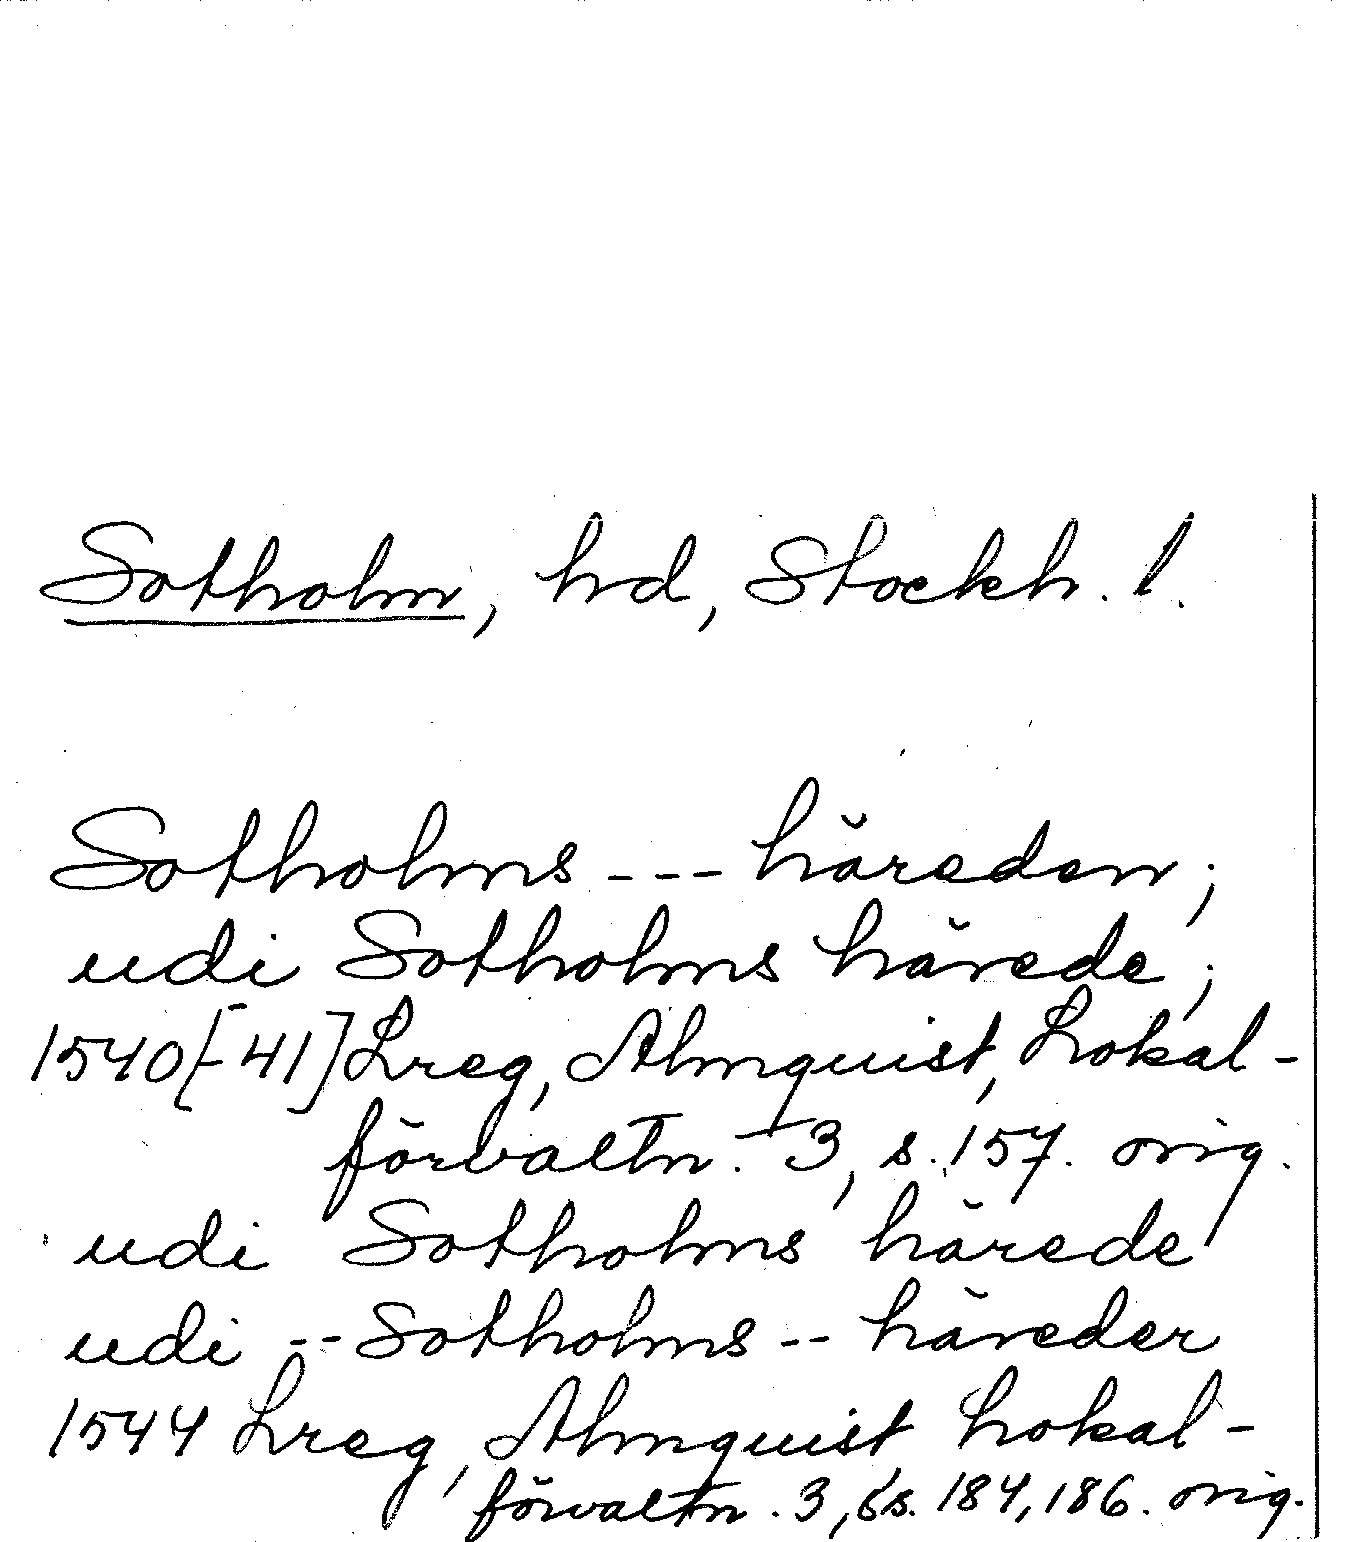 Sotholm, hd, Stockh. l.
Sotholms --- häreden;
udi Sotholms härede;
1540[-41] Lreg, Almquist, Lokal-
förvaltn. 3, s. 157. orig.
udi Sotholms härede
udi -- Sotholms -- häreder
1544 Lreg, Almquist Lokal-
förvaltn. 3, ss. 184, 186. orig.